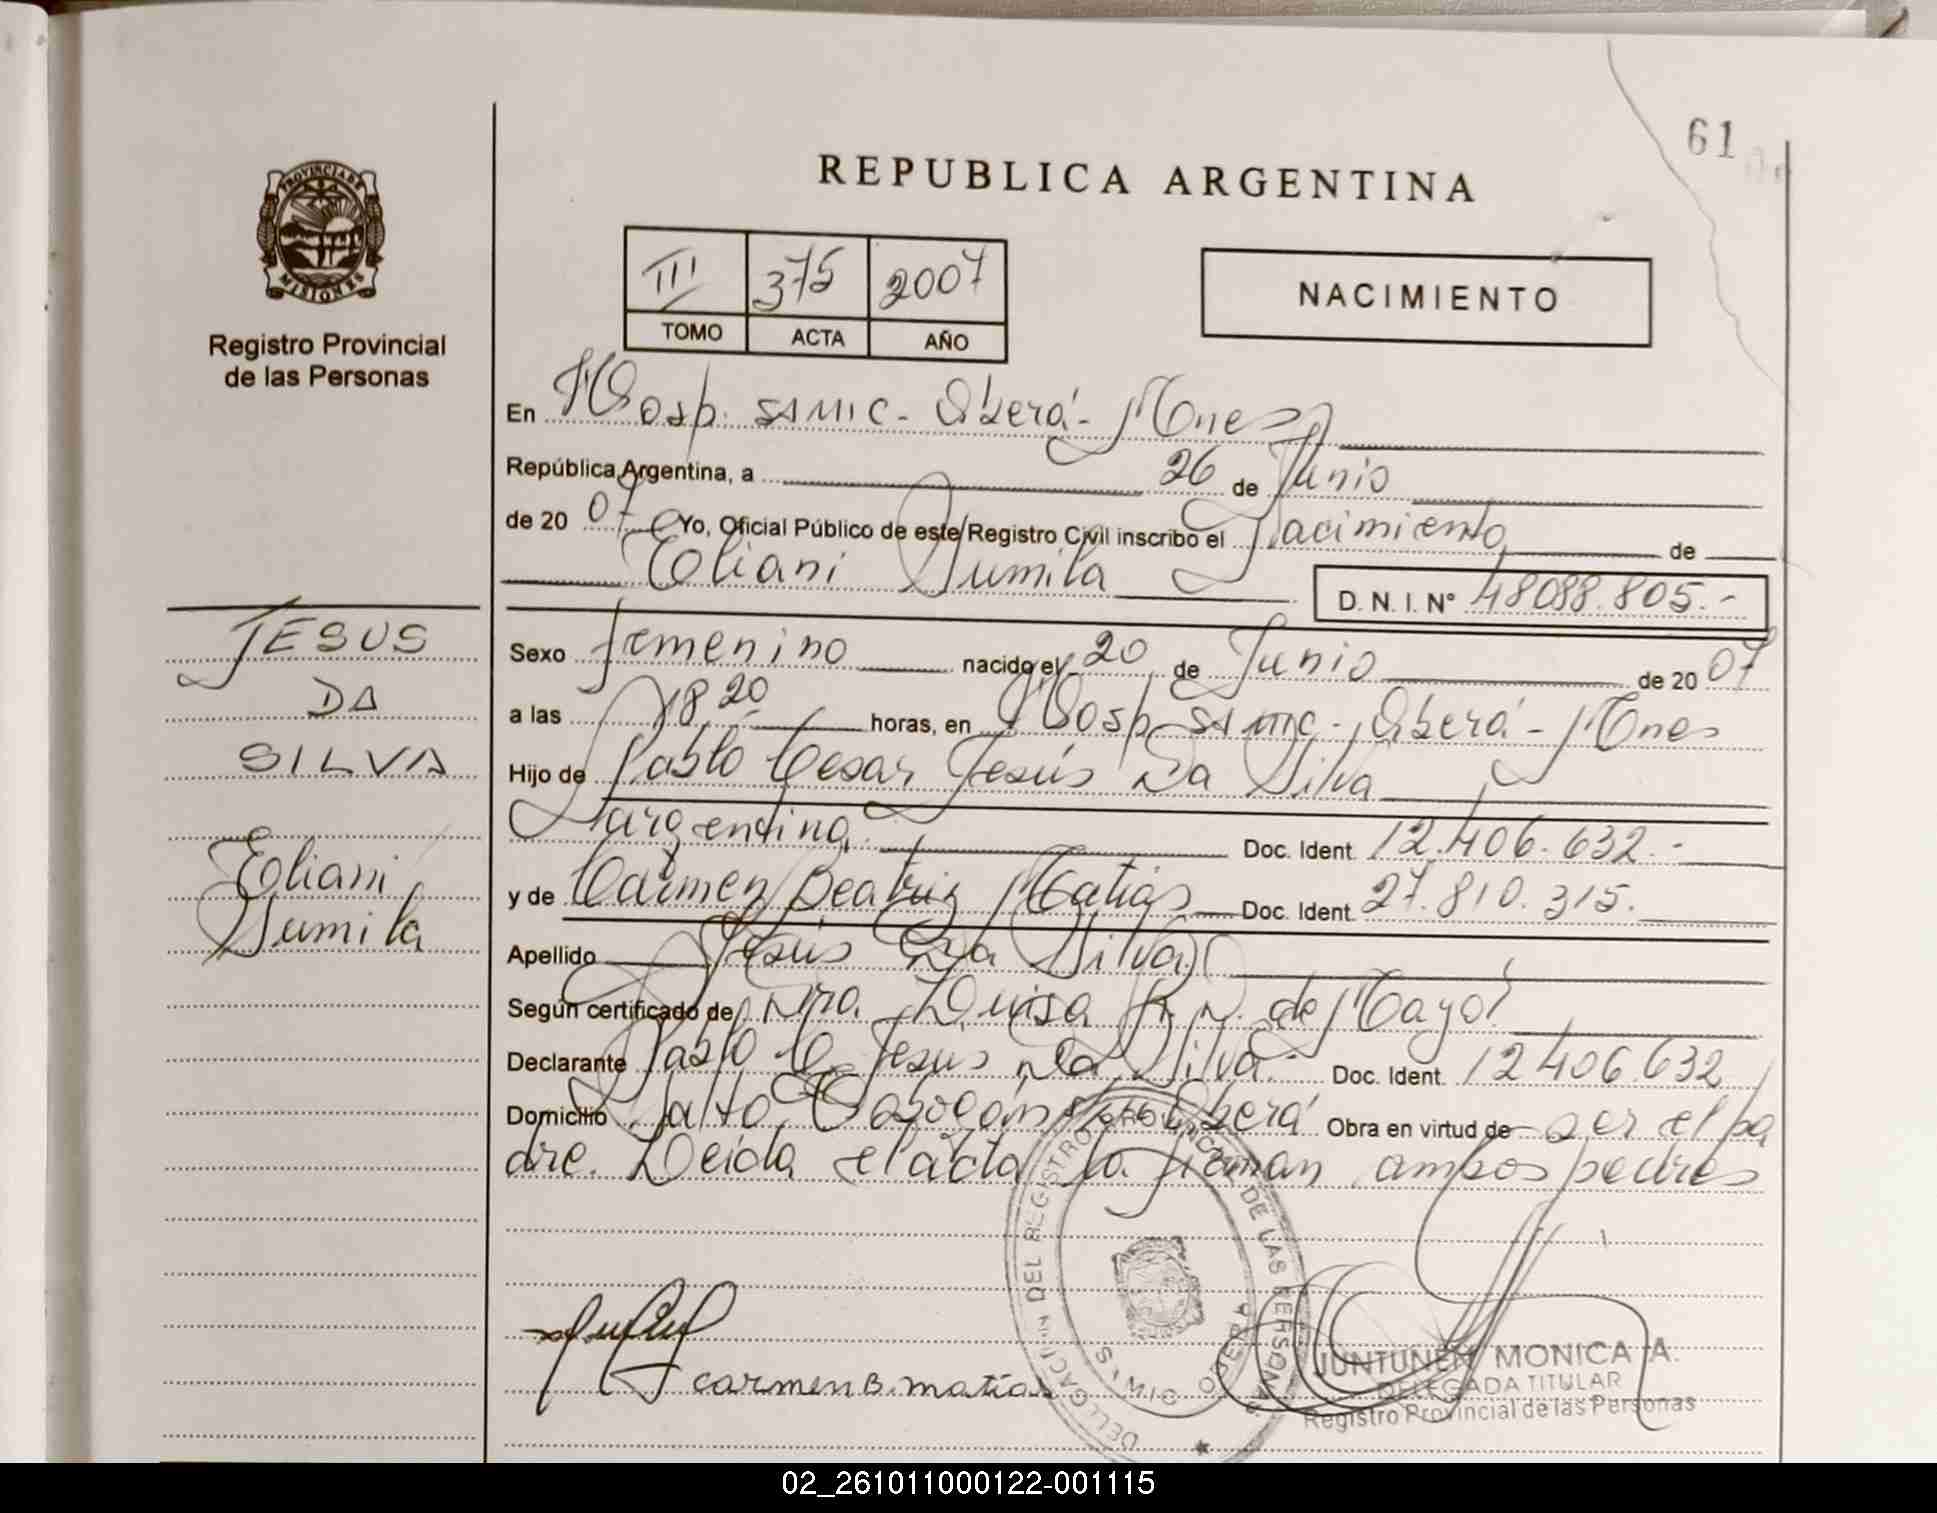 61
REPUBLICA ARGENTINA
PROVINCIA DE
MISIONES
Registro Provincial
de las Personas
III 375 2007
TOMO ACTA AÑO
NACIMIENTO
En Hosp. SAMIC - Oberá - Mnes
República Argentina, a 26 de Junio
de 20 07 Yo, Oficial Público de este Registro Civil inscribo el Nacimiento de
Eliani Jumila
D. N. I. N° 48088.805.-
JESUS
DA
SILVA
Eliani
Jumila
Sexo femenino nacido el 20 de Junio de 20 07
a las 18 20 horas, en Hosp. SAMIC - Oberá - Mnes
Hijo de Pablo Cesar Jesús Da Silva
argentina. Doc. Ident. 12.406.632.-
y de Carmen Beatriz Matias Doc. Ident. 27.810.315.
Apellido Jesús Da Silva
Según certificado de Dra. Luisa de Mayol
Declarante Pablo C. Jesus Da Silva.- Doc. Ident. 12406.632
Domicilio Salto Oberá Obra en virtud de ser el pa
dre. Leida el acta la firman ambos padres
carmen B. matias
DELEGACION DEL REGISTRO PROVINCIAL DE LAS PERSONAS
SAMIC OBERA
JUNTUNEN MONICA A.
DELEGADA TITULAR
Registro Provincial de las Personas
02_261011000122-001115